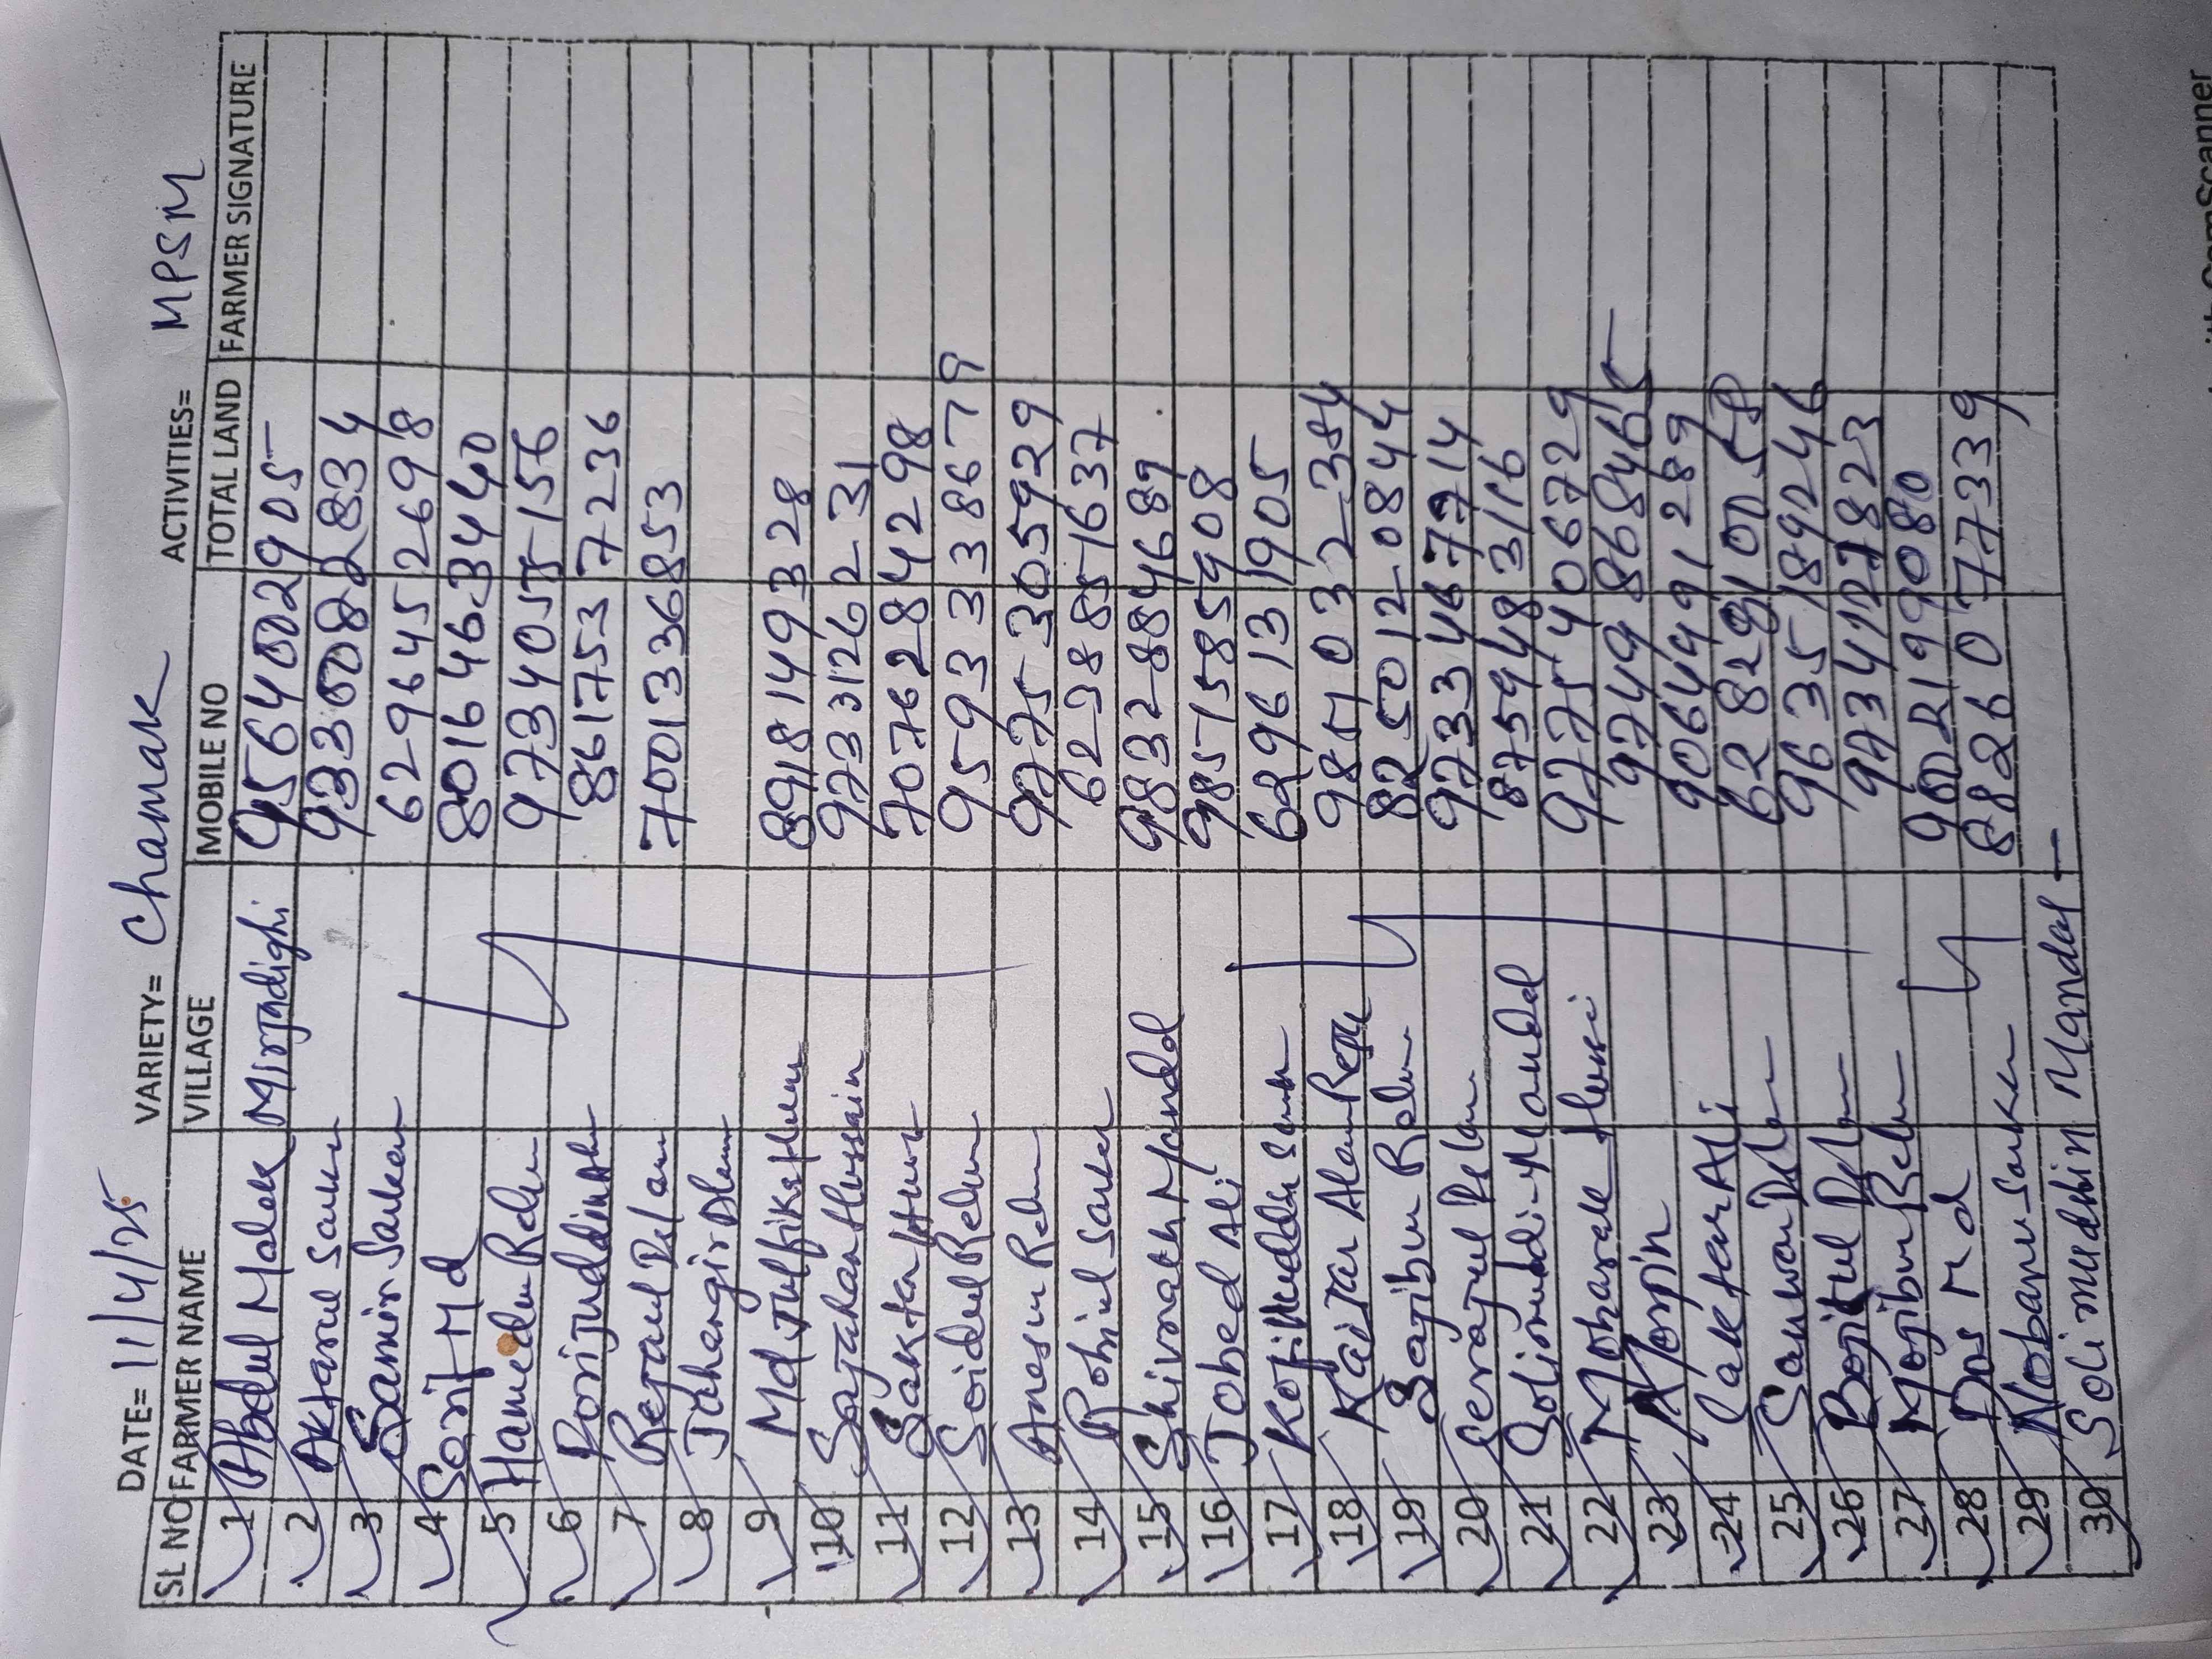 DATE= 11/4/25 VARIETY= Chamak ACTIVITIES= MPSM
SL NO FARMER NAME VILLAGE MOBILE NO TOTAL LAND FARMER SIGNATURE
1 Abdul Malek Mirjadighi 9564002905
2 Aktarul Sarkar 9330082834
3 Samir Sarkar 6296452698
4 Sorif Md 8016463440
5 Hamedur Rahm 9734055156
6 8617537236
7 Rejaul 7001336853
8 Jahangir
9 Md Julfikar 8918149328
10 Sajahan Hossain 9733126231
11 Saktar 7076284298
12 Soidul Rahm 9593338679
13 Anesur Rahm 9775305929
14 Rohiul Sarkar 6238851637
15 Shivnath Mandal 9832884689
16 Jobed Ali 9851585908
17 6296131905
18 Kaijar Alam 9851032384
19 Sajibur Rahm 8250120844
20 Serajul 9733467714
21 Mondal 8759483116
22 Mobarak 9775406729
23 9749868465
24 Saktar Ali 9064991289
25 Sanwar
26 9635189246
27 Mojibur Rahm
28 Dos Md 9002199080
29 Sarkar 8826077339
30 Solimuddin Mandal —